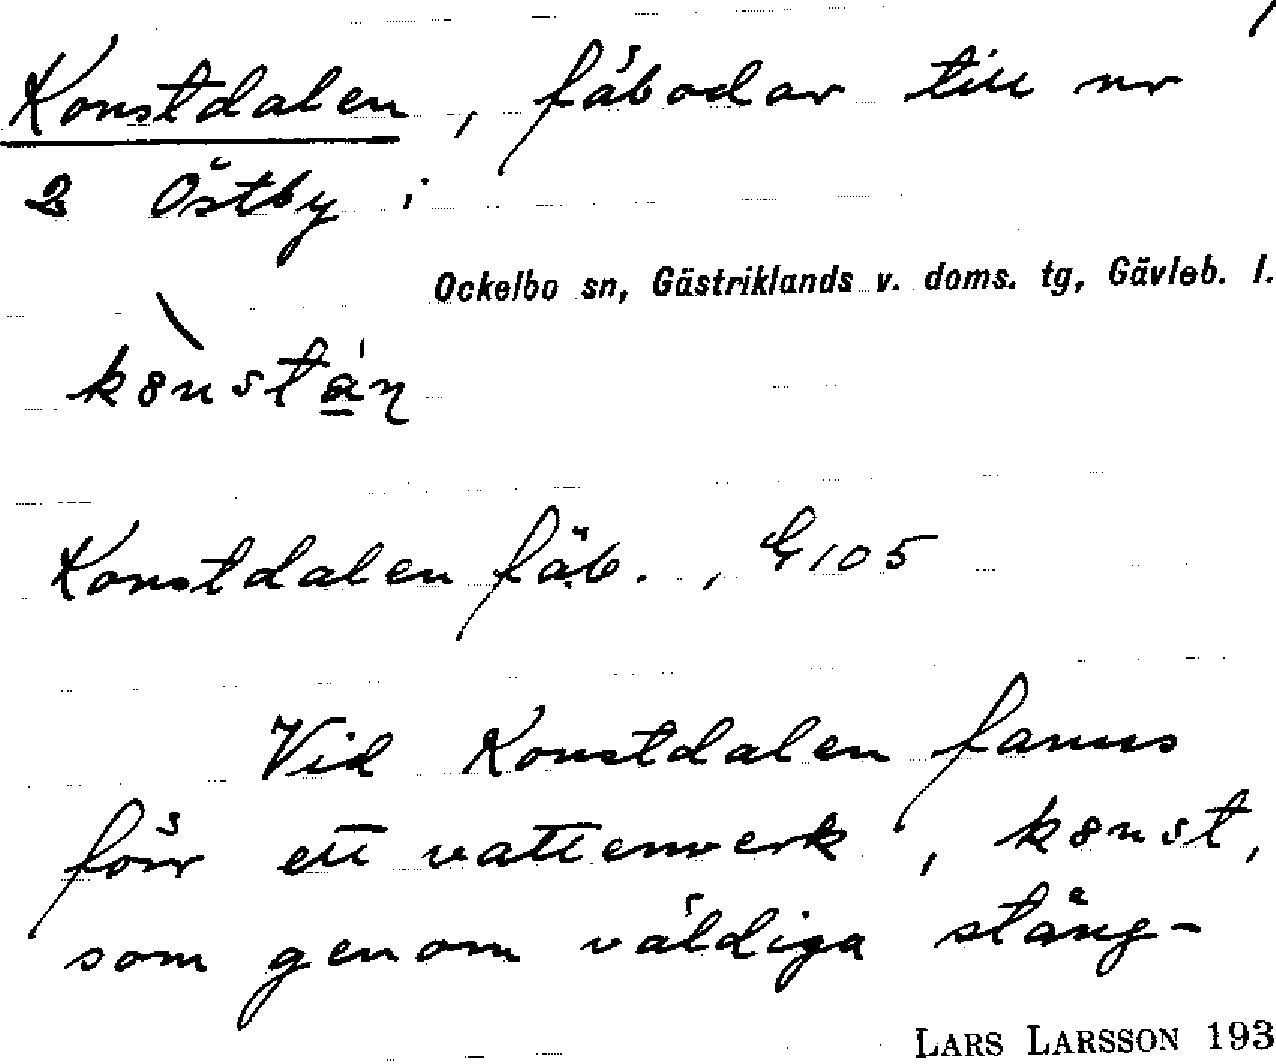 Konstdalen, fäbodar till nr
2 Östby i
Ockelbo sn, Gästriklands v. doms. tg, Gävleb. l.
Konstdalen fäb., G105
Vid Konstdalen fanns
förr ett vattenverk, k8nst,
som genom väldiga stång-
LARS LARSSON 193